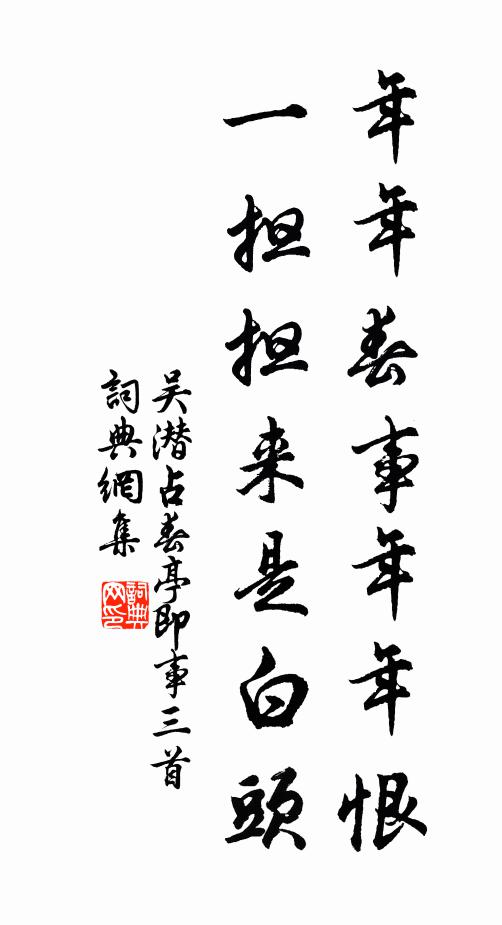 年年春事年年恨
一担担来是白頭
吴潜占春亭即事三首
詞典網集
詞典
网印